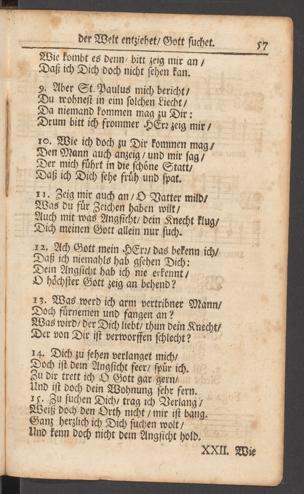 der Welt entziehet/ Gott suchet. 57
Wie kombt es denn/ bitt zeig mir an/
Daß ich Dich doch nicht sehen kan.
9. Aber St. Paulus mich bericht/
Du wohnest in eim solchen Liecht/
Da niemand kommen mag zu Dir:
Drum bitt ich frommer HErr zeig mir/
10. Wie ich doch zu Dir kommen mag/
Den Mann auch anzeig/ und mir sag/
Der mich führt in die schöne Statt/
Daß ich Dich sehe früh und spat.
11. Zeig mir auch an/ O Vatter mild/
Was du für Zeichen haben wilt/
Auch mit was Angsicht/ dein Knecht klug/
Dich meinen Gott allein nur such.
12. Ach Gott mein HErr/ das bekenn ich/
Daß ich niemahls hab gsehen Dich:
Dein Angsicht hab ich nie erkennt/
O höchster Gott zeig an behend?
13. Was werd ich arm vertribner Mann/
Doch fürnemen und fangen an?
Was wird/ der Dich liebt/ thun dein Knecht/
Der von Dir ist verworffen schlecht?
14. Dich zu sehen verlanget mich/
Doch ist dem Angsicht feer/ spür ich.
Zu dir trett ich O Gott gar gern/
Und ist doch dein Wohnung sehr fern.
15. Zu suchen Dich/ trag ich Verlang/
Weiß doch den Orth nicht/ mir ist bang.
Ganz herzlich ich Dich suchen wolt/
Und kenn doch nicht dein Angsicht hold.
XXII. Wie